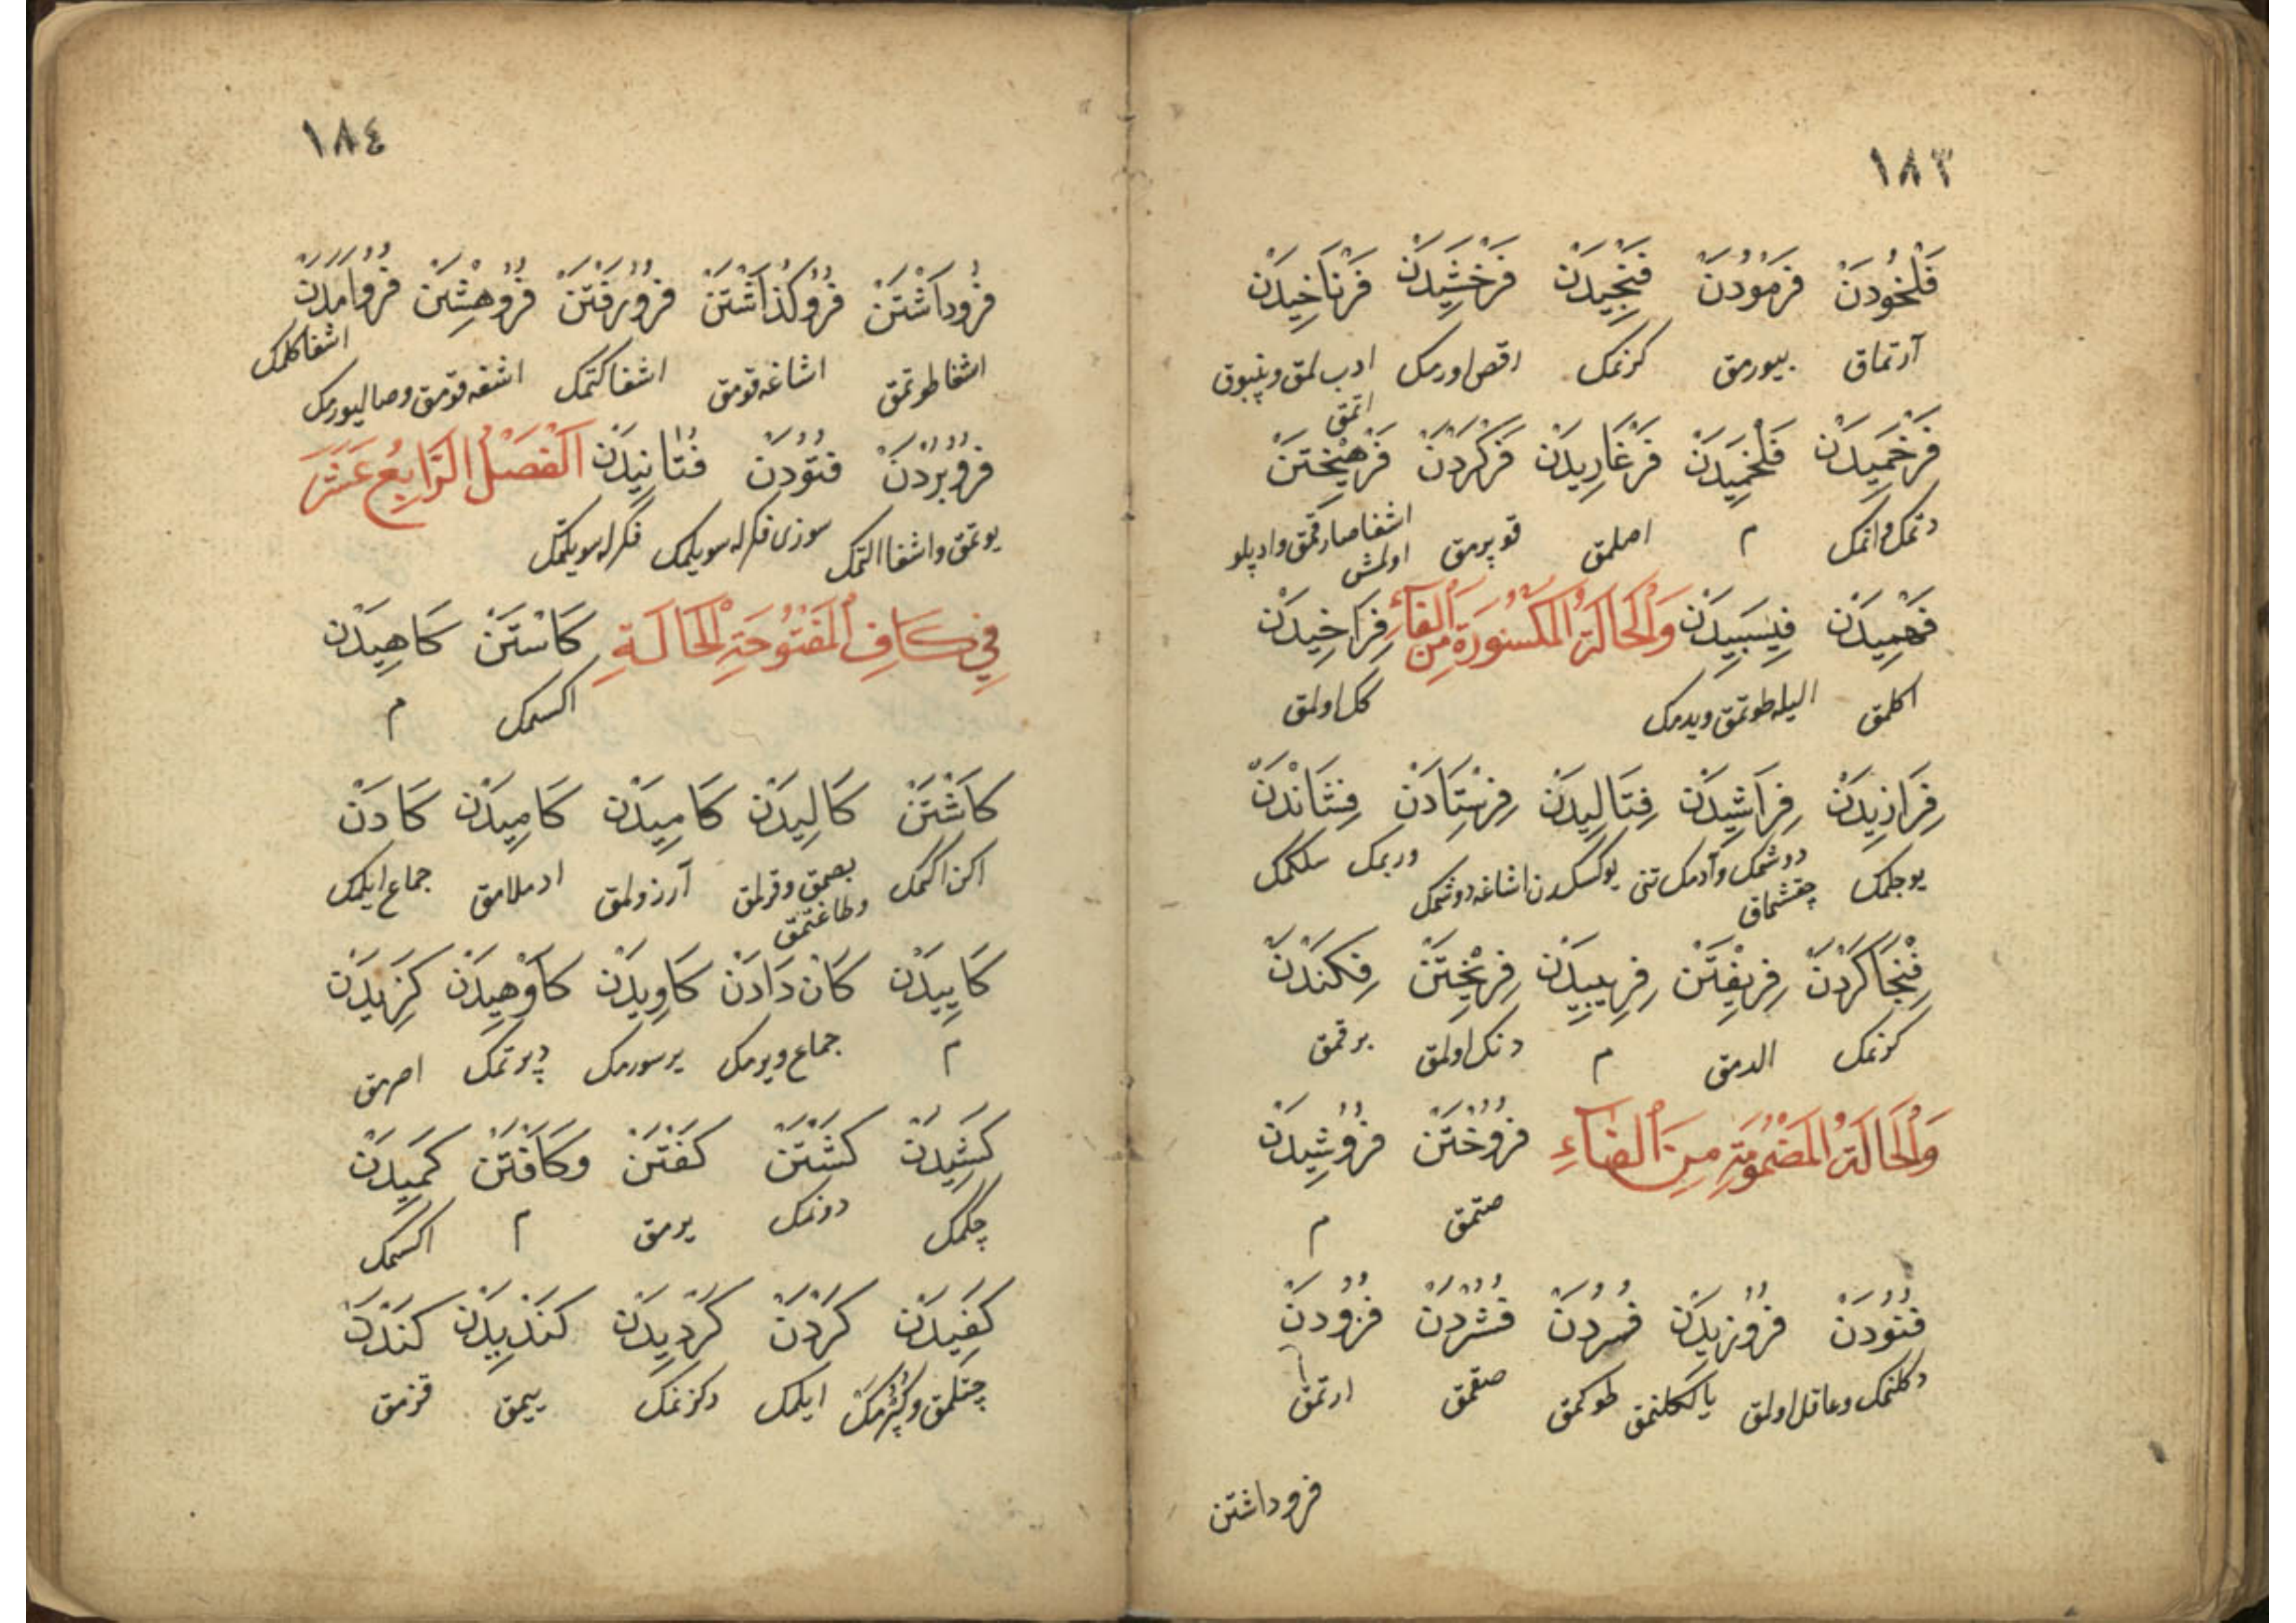 ١٨٣
فَلْخُودَنْ فَرْمُودَنْ فَنْجِيدَنْ فَرْخَشِيدَنْ فَرْنَاخِيدَنْ
آرتماق بیورمق کرنمک رقص اورمک ادب لمق وپنبوق
اتمق
فَرْخَمِيدَنْ فَلْخَمِيدَنْ فَرْغَارِيدَنْ فَرْكَرْدَنْ فَرْهِيْخْتَنْ
م اصلمق قوپرمق اشغا صارقمق وادبلو
اولمش
فَهْمِيدَنْ فِيسَبِيدَنْ وَالْحَالَةُ الْمَكْسُورَةُ مِنَ الْفَاءِ فِرَاخِيدَنْ
اکلمق الیله طوتمق ویدمک کل اولمق
فِرَازِيدَنْ فِرَاشِيدَنْ فِتَالِيدَنْ فِرِسْتَادَنْ فِشَانْدَنْ
یوجلمک دوشمک وآدمک تنی یوکسکدن اشاغه دوشمک ورىمک سلکمک
چقشماق
فِنْجَاكَرْدَنْ فِرِيفْتَنْ فِرِيبِيدَنْ فِرِيخْتَنْ فِكَنْدَنْ
کرنمک الدمق م دنک اولمق برقمق
وَالْحَالَةُ الْمَضْمُومَةِ مِنَ الْفَاءِ فُرُوخْتَنْ فُرُوشِيدَنْ
صتمق م
فُنُودَنْ فُرُوزِيدَنْ فُسُردَنْ فُشُرْدَنْ فُزُودَنْ
دکلنمک وعاقل اولمق طوکمق صقمق ارتمق
فروداشتن
١٨٤
فُرُودَاشْتَنْ فُرُوكُذَاشْتَنْ فُرُورَفْتَنْ فُرُوهِشْتَنْ فُرُوآمَدَنْ
اشغا کلمک
اشغا طوتمق اشاغه قومق اشغا کتمک اشغه قومق وصالیورمک
فُرُوبُرْدَنْ فُتُودَنْ فُتَانِيدَنْ اَلْفَصْلُ الرَّابِعُ عَشَرَ
یوتمق واشغا التمک سوزی فکرله سویلمک فکرله سویلمک
فِي كَافِ الْمَفْتُوحَةِ الْحَالَةِ كَاسْتَنْ كَاهِيدَنْ
اکسمک م
كَاشْتَنْ كَالِيدَنْ كَامِيدَنْ كَامِيدَنْ كَادَنْ
اکن اکمک بصمق وقرلمق آرزولمق ادملامق جماع ایلمک
وطاغتمق
كَايِيدَنْ كَانْ دَادَنْ كَاوِيدَنْ كَاوْهِيدَنْ كَزِيدَنْ
م جماع ویرمک یر سورمک دپرتمک اصرمق
كَشِيدَنْ كَشْتَنْ كَفْتَنْ وكَافْتَنْ كَمِيدَنْ
چکمک دونمک یرمق م اکسمک
كَفِيدَنْ كَرْدَنْ كَرْدِيدَنْ كَنْدِيدَنْ كَنْدَنْ
چتلمق ایلمک دکزنمک ییمق قزمق